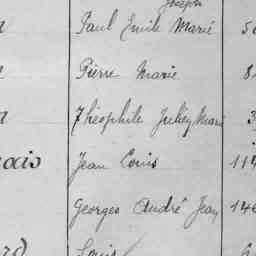 Joseph
Paul Emile Marie
Pierre Marie
Théophile Julien Marie
Jean Louis 114
Georges André Jean 140
Louis